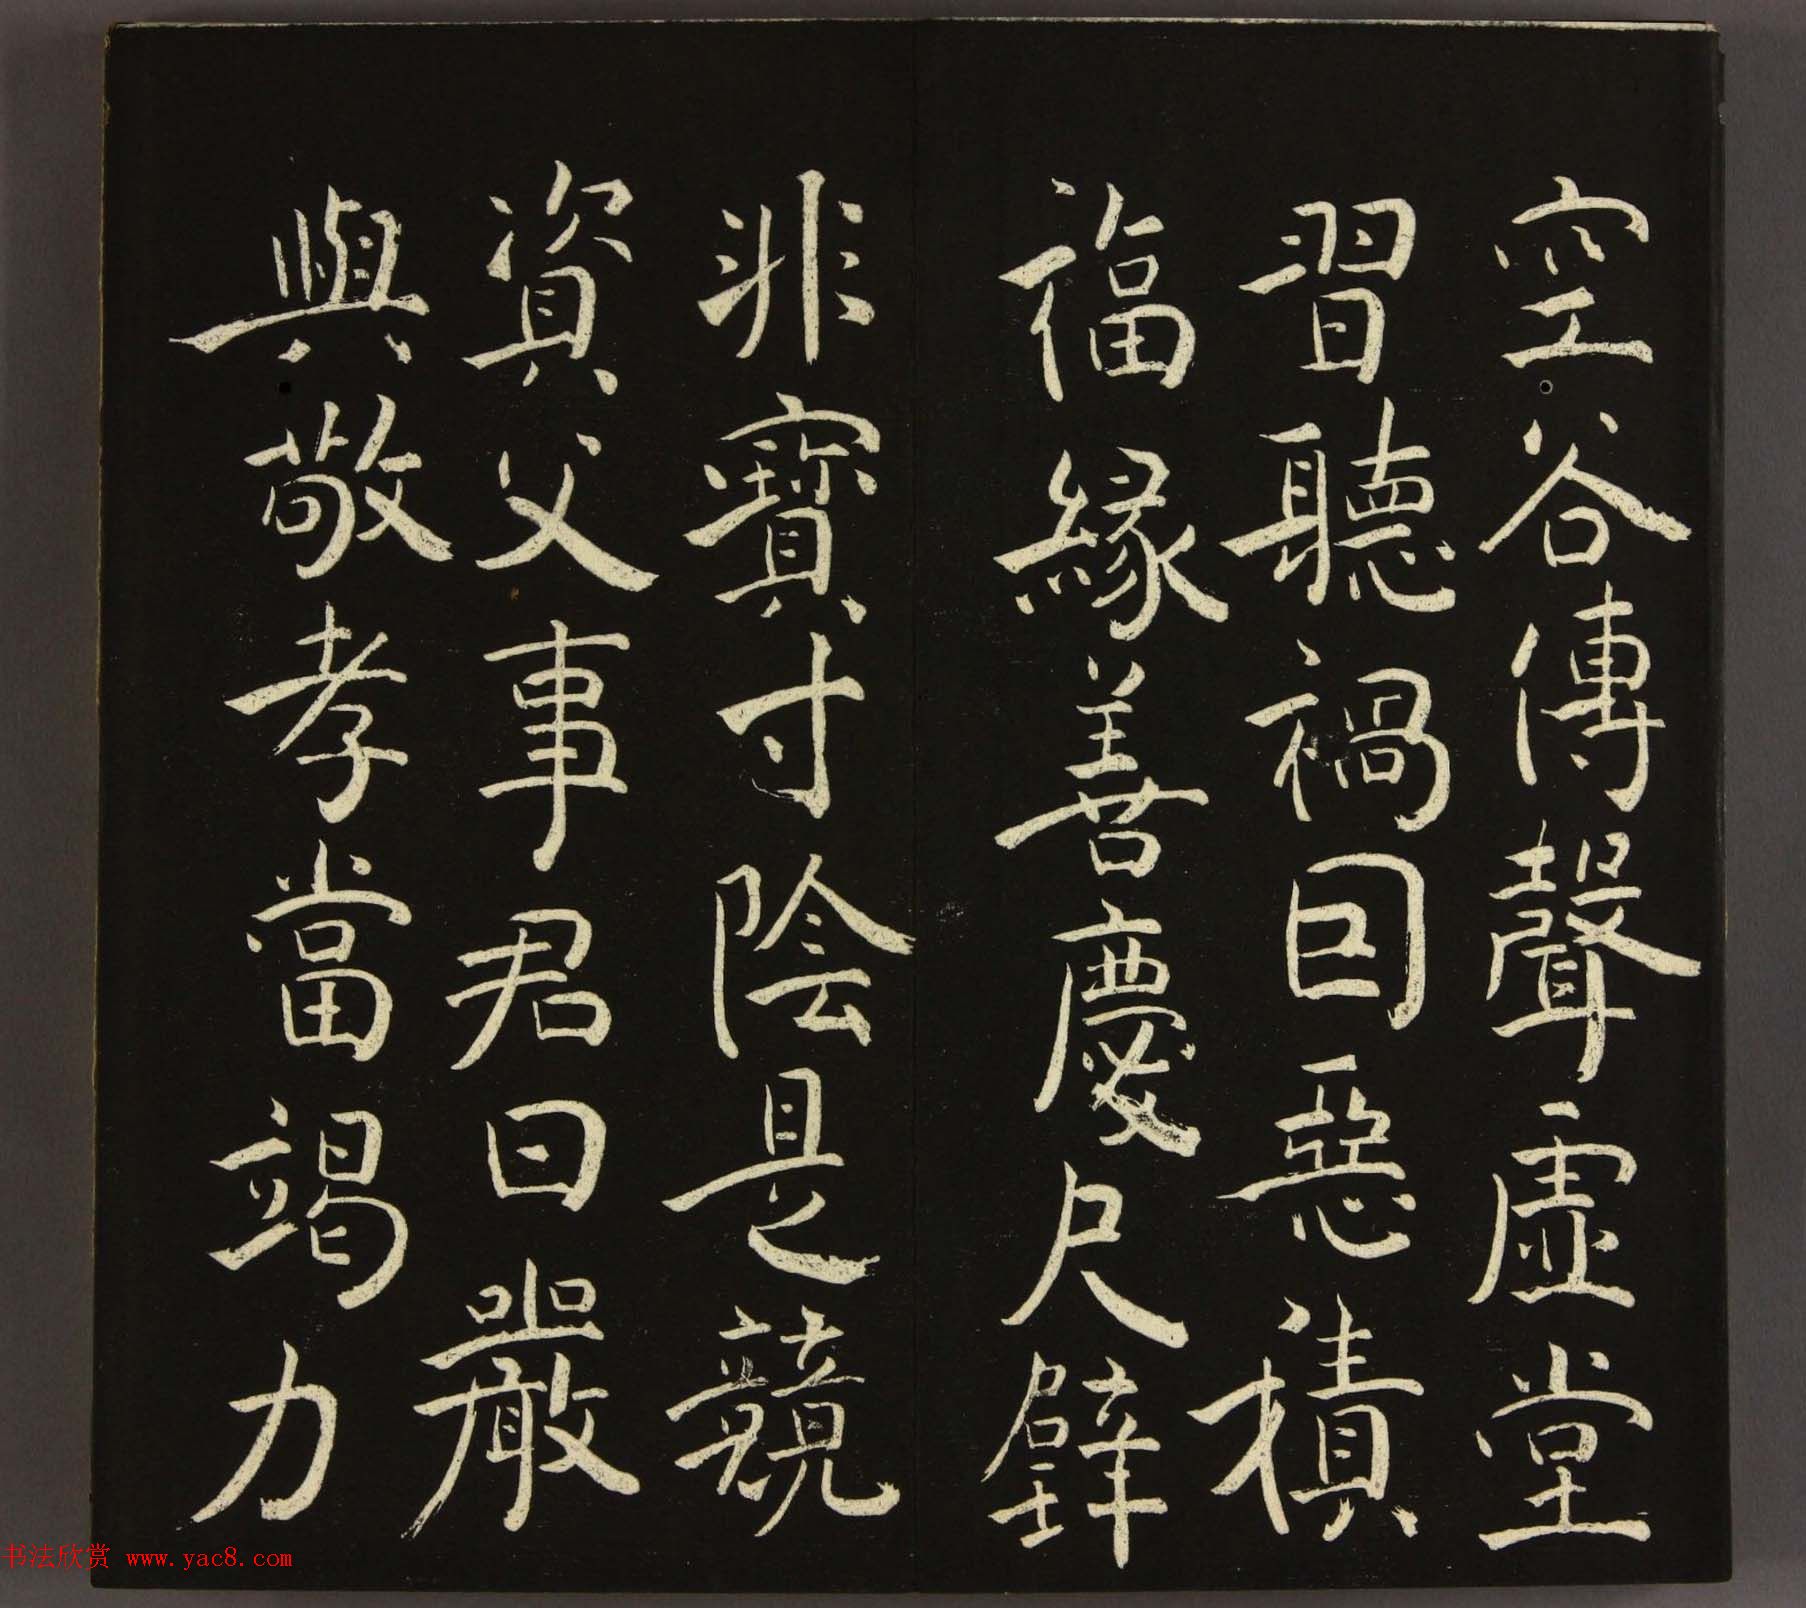 空谷傳聲虛堂
習聽禍因惡積
福緣善慶尺璧
非寶寸陰是競
資父事君曰嚴
與敬孝當竭力
书法欣赏 www.yac8.com